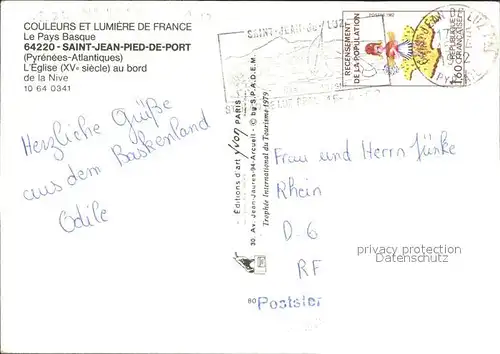 COULEURS ET LUMIÈRE DE FRANCE
Le Pays Basque
64220 - SAINT-JEAN-PIED-DE-PORT
(Pyrénées-Atlantiques)
L'Église (XVe siècle) au bord
de la Nive
10 64 0341
Herzliche Grüße
aus dem Baskenland
Odile
Editions d'art yvon PARIS
30, Av. Jean-Jaurès-94-Arcueil - © by S.P.A.D.E.M.
Trophée International du Tourisme 1979
SAINT-JEAN-DE-LUZ
RECENSEMENT
DE LA POPULATION
POSTES 1982
1,60
REPUBLIQUE
FRANCAISE
JEAN DE LUZ
Frau und Herrn Jünke
Rhein
D-6
RF
80
privacy protection
Datenschutz